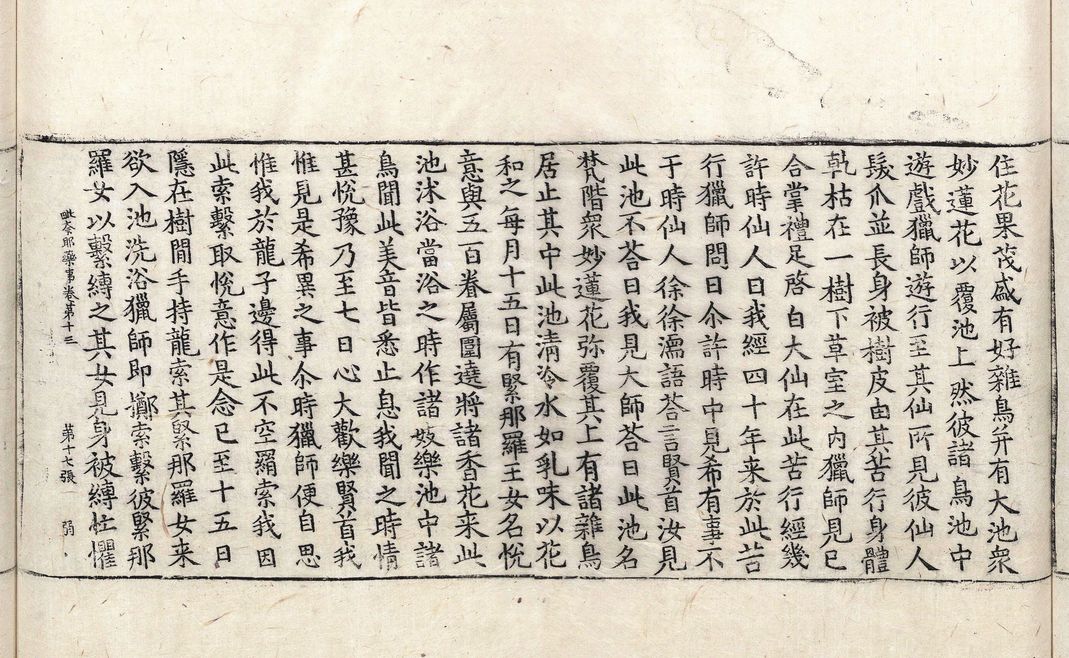 住花果茂盛有好雜鳥并有大池衆
妙蓮花以覆池上然彼諸鳥池中
遊戲獵師遊行至其仙所見彼仙人
髮爪並長身被樹皮由其苦行身體
乾枯在一樹下草室之內獵師見已
合掌禮足啓白大仙在此苦行經幾
許時仙人曰我經四十年来於此苦
行獵師問曰尒許時中見希有事不
于時仙人徐徐濡語荅言賢首汝見
此池不荅曰我見大師荅曰此池名
梵階衆妙蓮花弥覆其上有諸雜鳥
居止其中此池清冷水如乳味以花
和之每月十五日有緊那羅王女名悅
意與五百眷屬圍遶將諸香花来此
池沐浴當浴之時作諸妓樂池中諸
鳥聞此美音皆悉止息我聞之時情
甚悅豫乃至七日心大歡樂賢首我
惟見是希異之事尒時獵師便自思
惟我於龍子邊得此不空羂索我因
此索繫取悅意作是念已至十五日
隱在樹間手持龍索其緊那羅女来
欲入池洗浴獵師即擲索繫彼緊那
羅女以繫縛之其女見身被縛忙懼
毗奈耶藥事卷第十三 第十七張